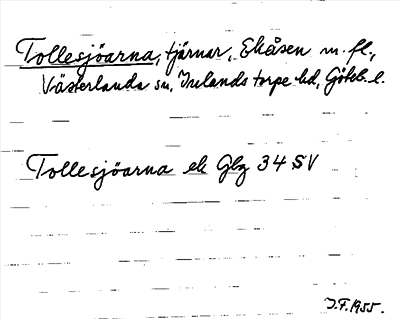 Tollesjöarna, tjärnar, Ekåsen m. fl.,
Västerlanda sn, Inlands torpe hd, Göteb. l.
Tollesjöarna ek Gbg 34 SV
J.F. 1955.